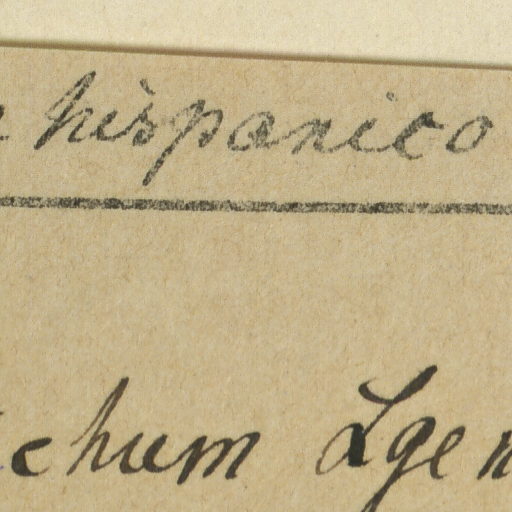 hispanico
chum Lgen